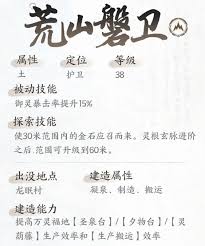 荒山磐卫
属性 定位 等级
土 护卫 38
被动技能
御灵暴击率提升15%
探索技能
使30米范围内的金石应召而来。灵根玄脉进阶
之后，范围可升级到60米。
出没地点 建造属性
龙眠村 凝泉、制造、搬运
建造能力
提高万灵福地【圣泉台】/【夕物台】/【灵
葫藤】生产效率和【生产效率】搬运效率